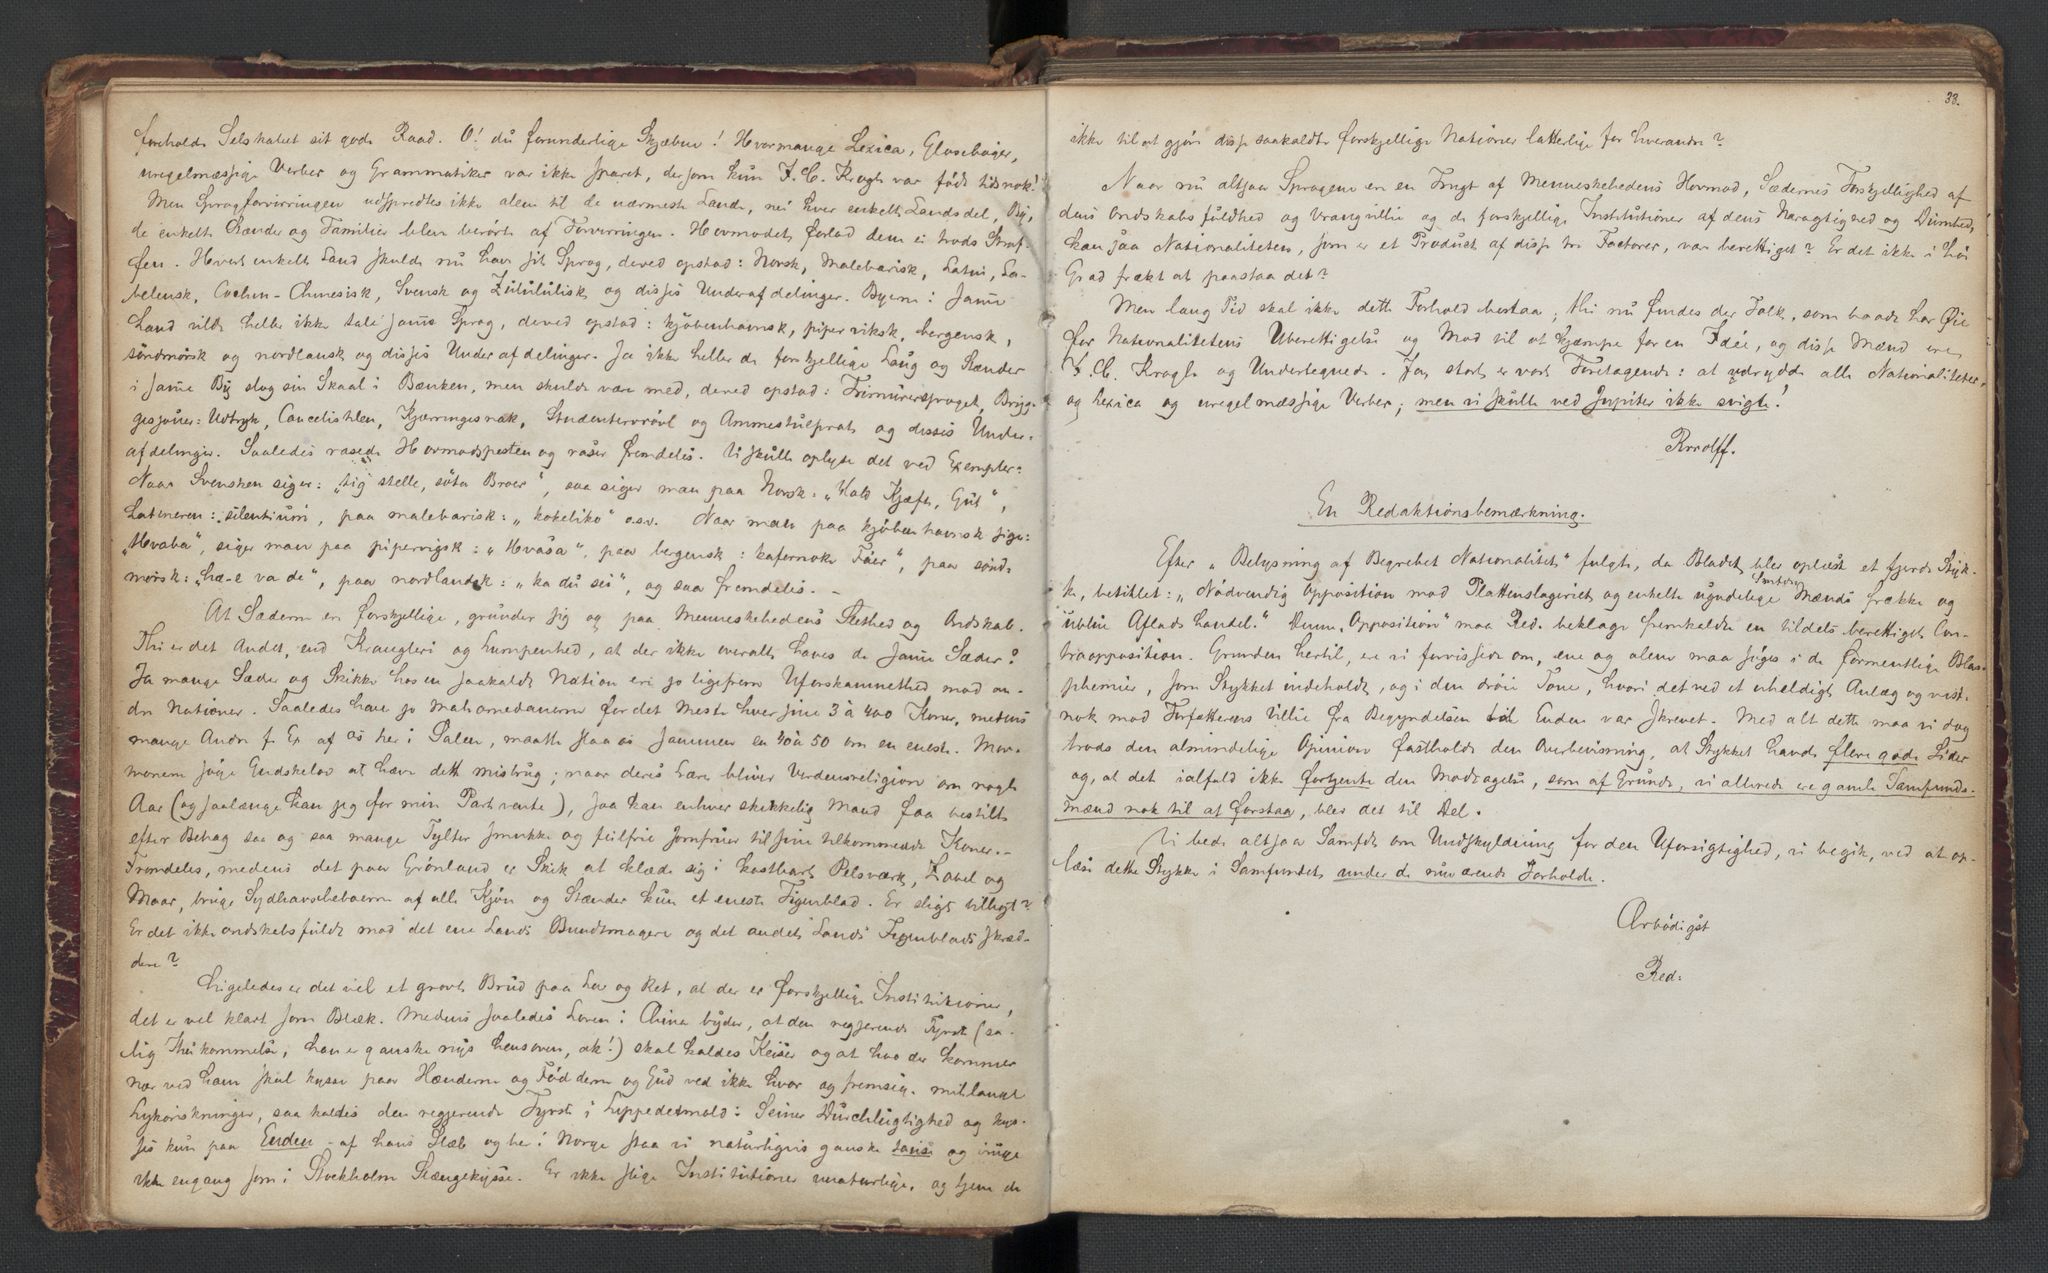 foreholdt Selskabet sit gode Raad. O! du forunderlige Skjæbne! Hvormange Lexica, Glosebøger,
uregelmæssige Verber og Grammatiker var ikke sparet, dersom kun F. C. Krogh var født tidsnok!
Men Sprogforvirringen udspredtes ikke alene til de nærmeste Lande, nei hver enkelt Landsdel, By,
de enkelte Stænder og Familier bleve berørte af Forvirringen. Hovmodet forlod dem ei trods Straf-
fen. Hvert enkelt Land skulde nu have sit Sprog, derved opstod: Norsk, Malebarisk, Latin, La-
belensk, Cochin-Chinesisk, Svensk og Zululúlisk og dissis Underafdelinger. Byerne i samme
Land vilde heller ikke tale samme Sprog, derved opstod: kjøbenhavnsk, piperviksk, bergensk,
søndmørsk og nordlansk og dissis Underafdelinger. Ja ikke heller de forskjellige Laug og Stænder
i samme By slog sin Skaal i Bænken, men skulde være med, derved opstod: Frimurersproget, Brygg-
gesjouer-Udtryk, Cancelistilen, Kjærringesnak, Studentervrøvl og Ammestulprat og dissis Under-
afdelinger. Saaledes rasede Hovmodspesten og raser fremdeles. Vi skulle oplyse det ved Exempler:
Naar Svensken siger: „tig stelle, söta Broer", saa siger man paa Norsk: „Hold Kjæft, Gut",
Latineren: silentium, paa malebarisk: „kokeliko" o.s.v. Naar man paa kjøbenhavnsk siger:
„Hvaba", siger man paa pipervigsk: „Hvåsa", paa bergensk: kafornoke Fäer", paa sønd-
mørsk: „hæ-e va de", paa nordlandsk: „ka du sei", og saa fremdeles. -
At Sæderne ere forskjellige, grunder sig og paa Menneskehedens Slethed og Ondskab.
Thi er det Andet, end Krangleri og Lumpenhed, at der ikke overalt haves de samme Sæder?
Ja mange Sæder og Skikke hos en saakaldt Nation ere jo ligefrem Uforskammethed mod an-
dre Nationer. Saaledes have jo Mahomedanerne for det meste hver sine 3 à 400 Koner, medens
mange Andre f. Ex. af os her i Salen, maatte slaa os sammen en 40 à 50 om en eneste. Mor-
monerne søge Gudskelov at hæve dette Misbrug; naar deres Lære bliver Verdensreligion om nogle
Aar (og saalænge kan jeg for min Part vente), saa kan enhver skikkelig Mand faa bestilt
efter Behag saa og saa mange Tylter smukke og feilfrie Jomfruer til sine tilkommende Koner. -
Fremdeles, medens det paa Grønland er Skik at klæde sig i kostbart Pelsværk, Zobel og
Maar, bruge Sydhavsbeboerne af alle Kjøn og Stænder kun et eneste Figenblad. Er sligt billigt?
Er det ikke ondskabsfuldt mod det ene Lands Bundtmagere og det andet Lands Figenblads Skræd-
dere?
Ligeledes er det vel et grovt Brud paa Lov og Ret, at der er forskjellige Institutioner,
det er vel klart som Blæk. Medens saaledes Loven i China byder, at den regjerende Fyrste (sa-
lig Ihukommelse, han er ganske nys hensoven, ak!) skal kaldes Keiser og at hvo der kommer
nær ved ham skal kysse paa Hænderne og Fødderne og Gud ved ikke hvor og fremsige milelange
Lykønskninger, saa kaldes den regjerende Fyrste i Lippedetmold: Seiner Durchlugtighed og kys-
ses kun paa Enden - af hans Stæb og her i Norge staa vi naturligvis ganske tause og bruge
ikke engang som i Stockholm Stængekysse. Er ikke slige Institutioner unaturlige, og tjene de
38.
ikke til at gjøre disse saakaldte forskjellige Nationer latterlige for hverandre?
Naar nu altsaa Sprogene ere en Frugt af Menneskehedens Hovmod, Sædernes Forskjellighed af
dens Ondskabsfuldhed og Vrangvillie og de forskjellige Institutioner af dens Næragtighed og Dumhed,
kan saa Nationaliteten, som er et Product af disse tre Factorer, være berettiget? Er det ikke i høi
Grad frækt at paastaa det?
Men lang Tid skal ikke dette Forhold bestaa; thi nu findes der Folk, som baade har Øie
for Nationalitetens Uberettigelse og Mod til at kjæmpe for en Idée, og disse Mænd ere
F. C. Krogh og Undertegnede. Ja, stort er vort Foretagende: at udrydde alle Nationaliteter,
og Lexica og uregelmæssige Verber; men vi skulle ved Jupiter ikke svigte!
Rrrolff.
En Redaktionsbemærkning.
Efter „Belysning af Begrebet Nationalitet" fulgte, da Bladet blev oplæst et fjerde Styk-
ke, betitlet: „Nødvendig Opposition mod Plattenslageriet og enkelte ugudelige Samfunds Mænds frække og
ublue Aflads Handel." Denne „Opposition" maa Red. beklage fremkaldte en tildels berettiget Con-
traopposition. Grunden hertil, ere vi forvissede om, ene og alene maa søges i de formentlige Blas-
phemier, som Stykket indeholdt, og i den drøie Tone, hvori det ved et uheldigt Anlæg og vist-
nok mod Forfatterens Villie fra Begyndelsen til Enden var skrevet. Med alt dette maa vi dog
trods den almindelige Opinion fastholde den Overbevisning, at Stykket havde flere gode Sider
og, at det ialfald ikke fortjente den Modtagelse, som af Grunde, vi allerede ere gamle Samfunds-
mænd nok til at forstaa, blev det til Del.
Vi bede altsaa Samfdt om Undskyldning for den Uforsigtighed, vi begik, ved at op-
læse dette Stykke i Samfundet under de nuværende Forholde.
Ærbødigst
Red: